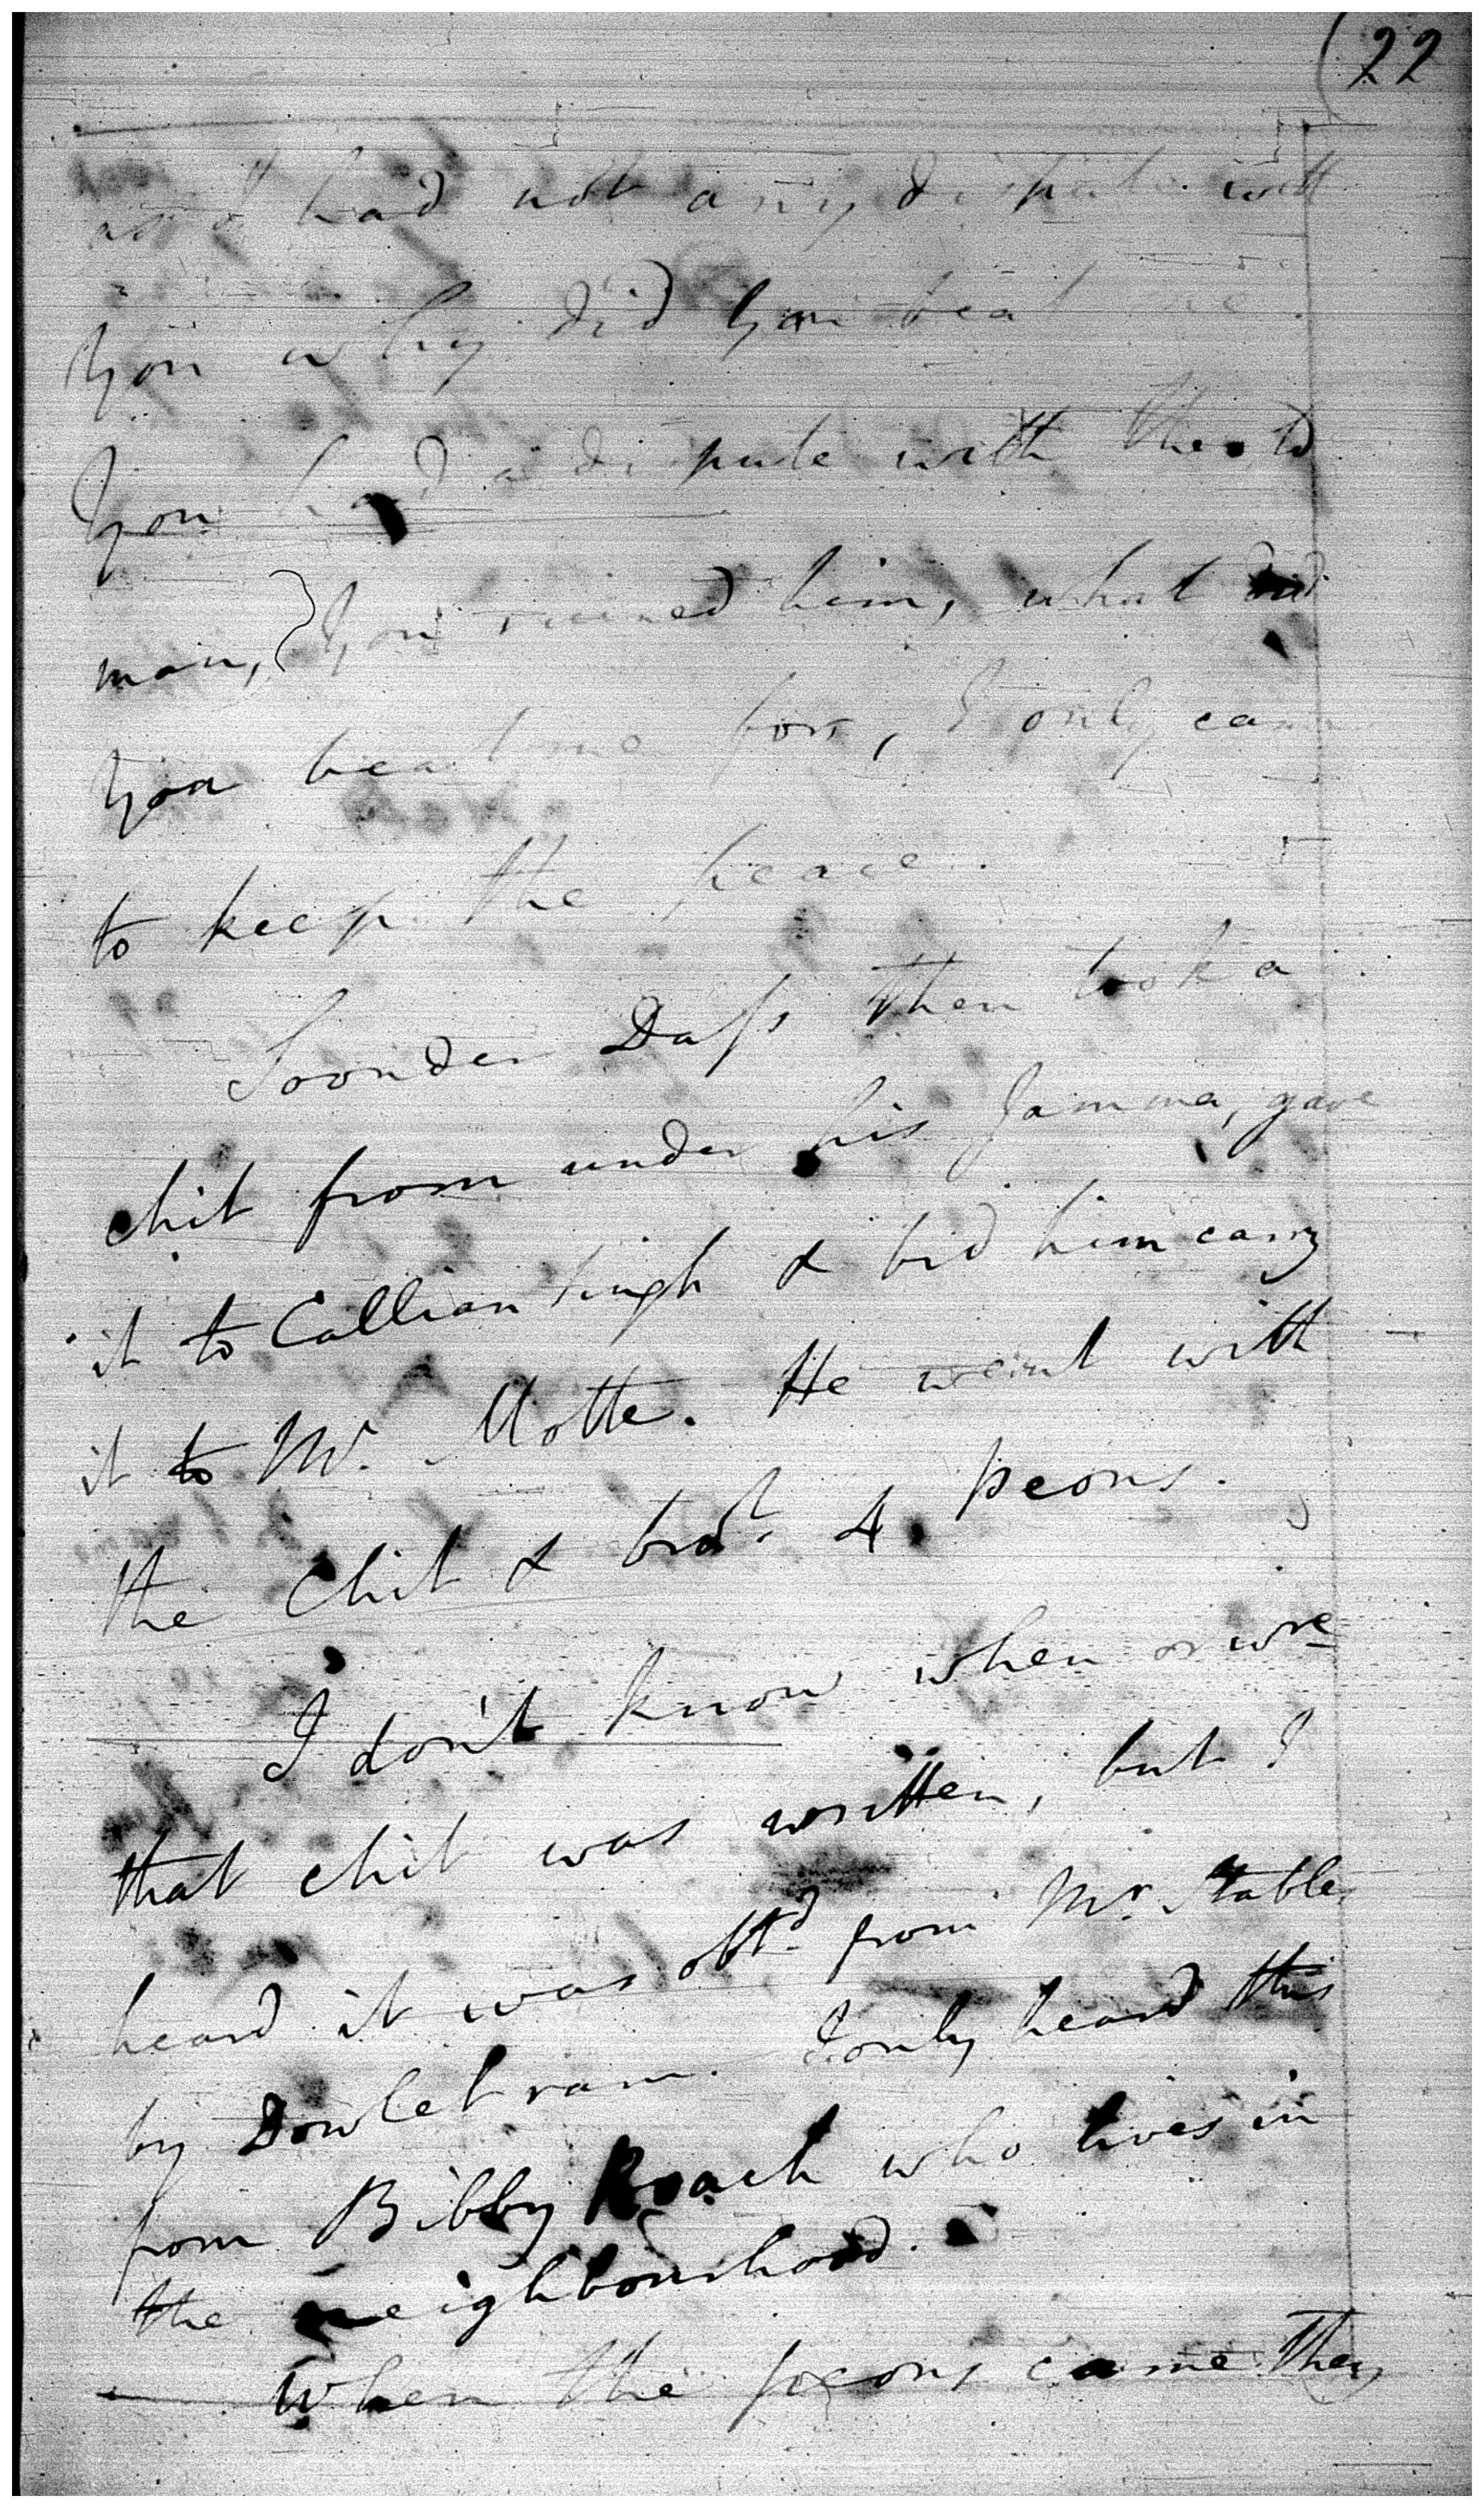 (22
as I had not any dispute with
you why did you beat me.
You had a dispute with the old
man, you ruined him, what did
you beat me for, I only came
to keep the peace.
Soonder Dass then took a
chit from under his Jamma, gave
it to Callian Singh & bid him carry
it to Mr. Motte. He went with
the Chit & brot. 4 peons.
I don't know when or wre
that chit was written, but I
heard it was obtd from Mr. Stables
by Dowlet ram. I only heard this
from Bibby Roach who lives in
the neighbourhood.
When the peons came they